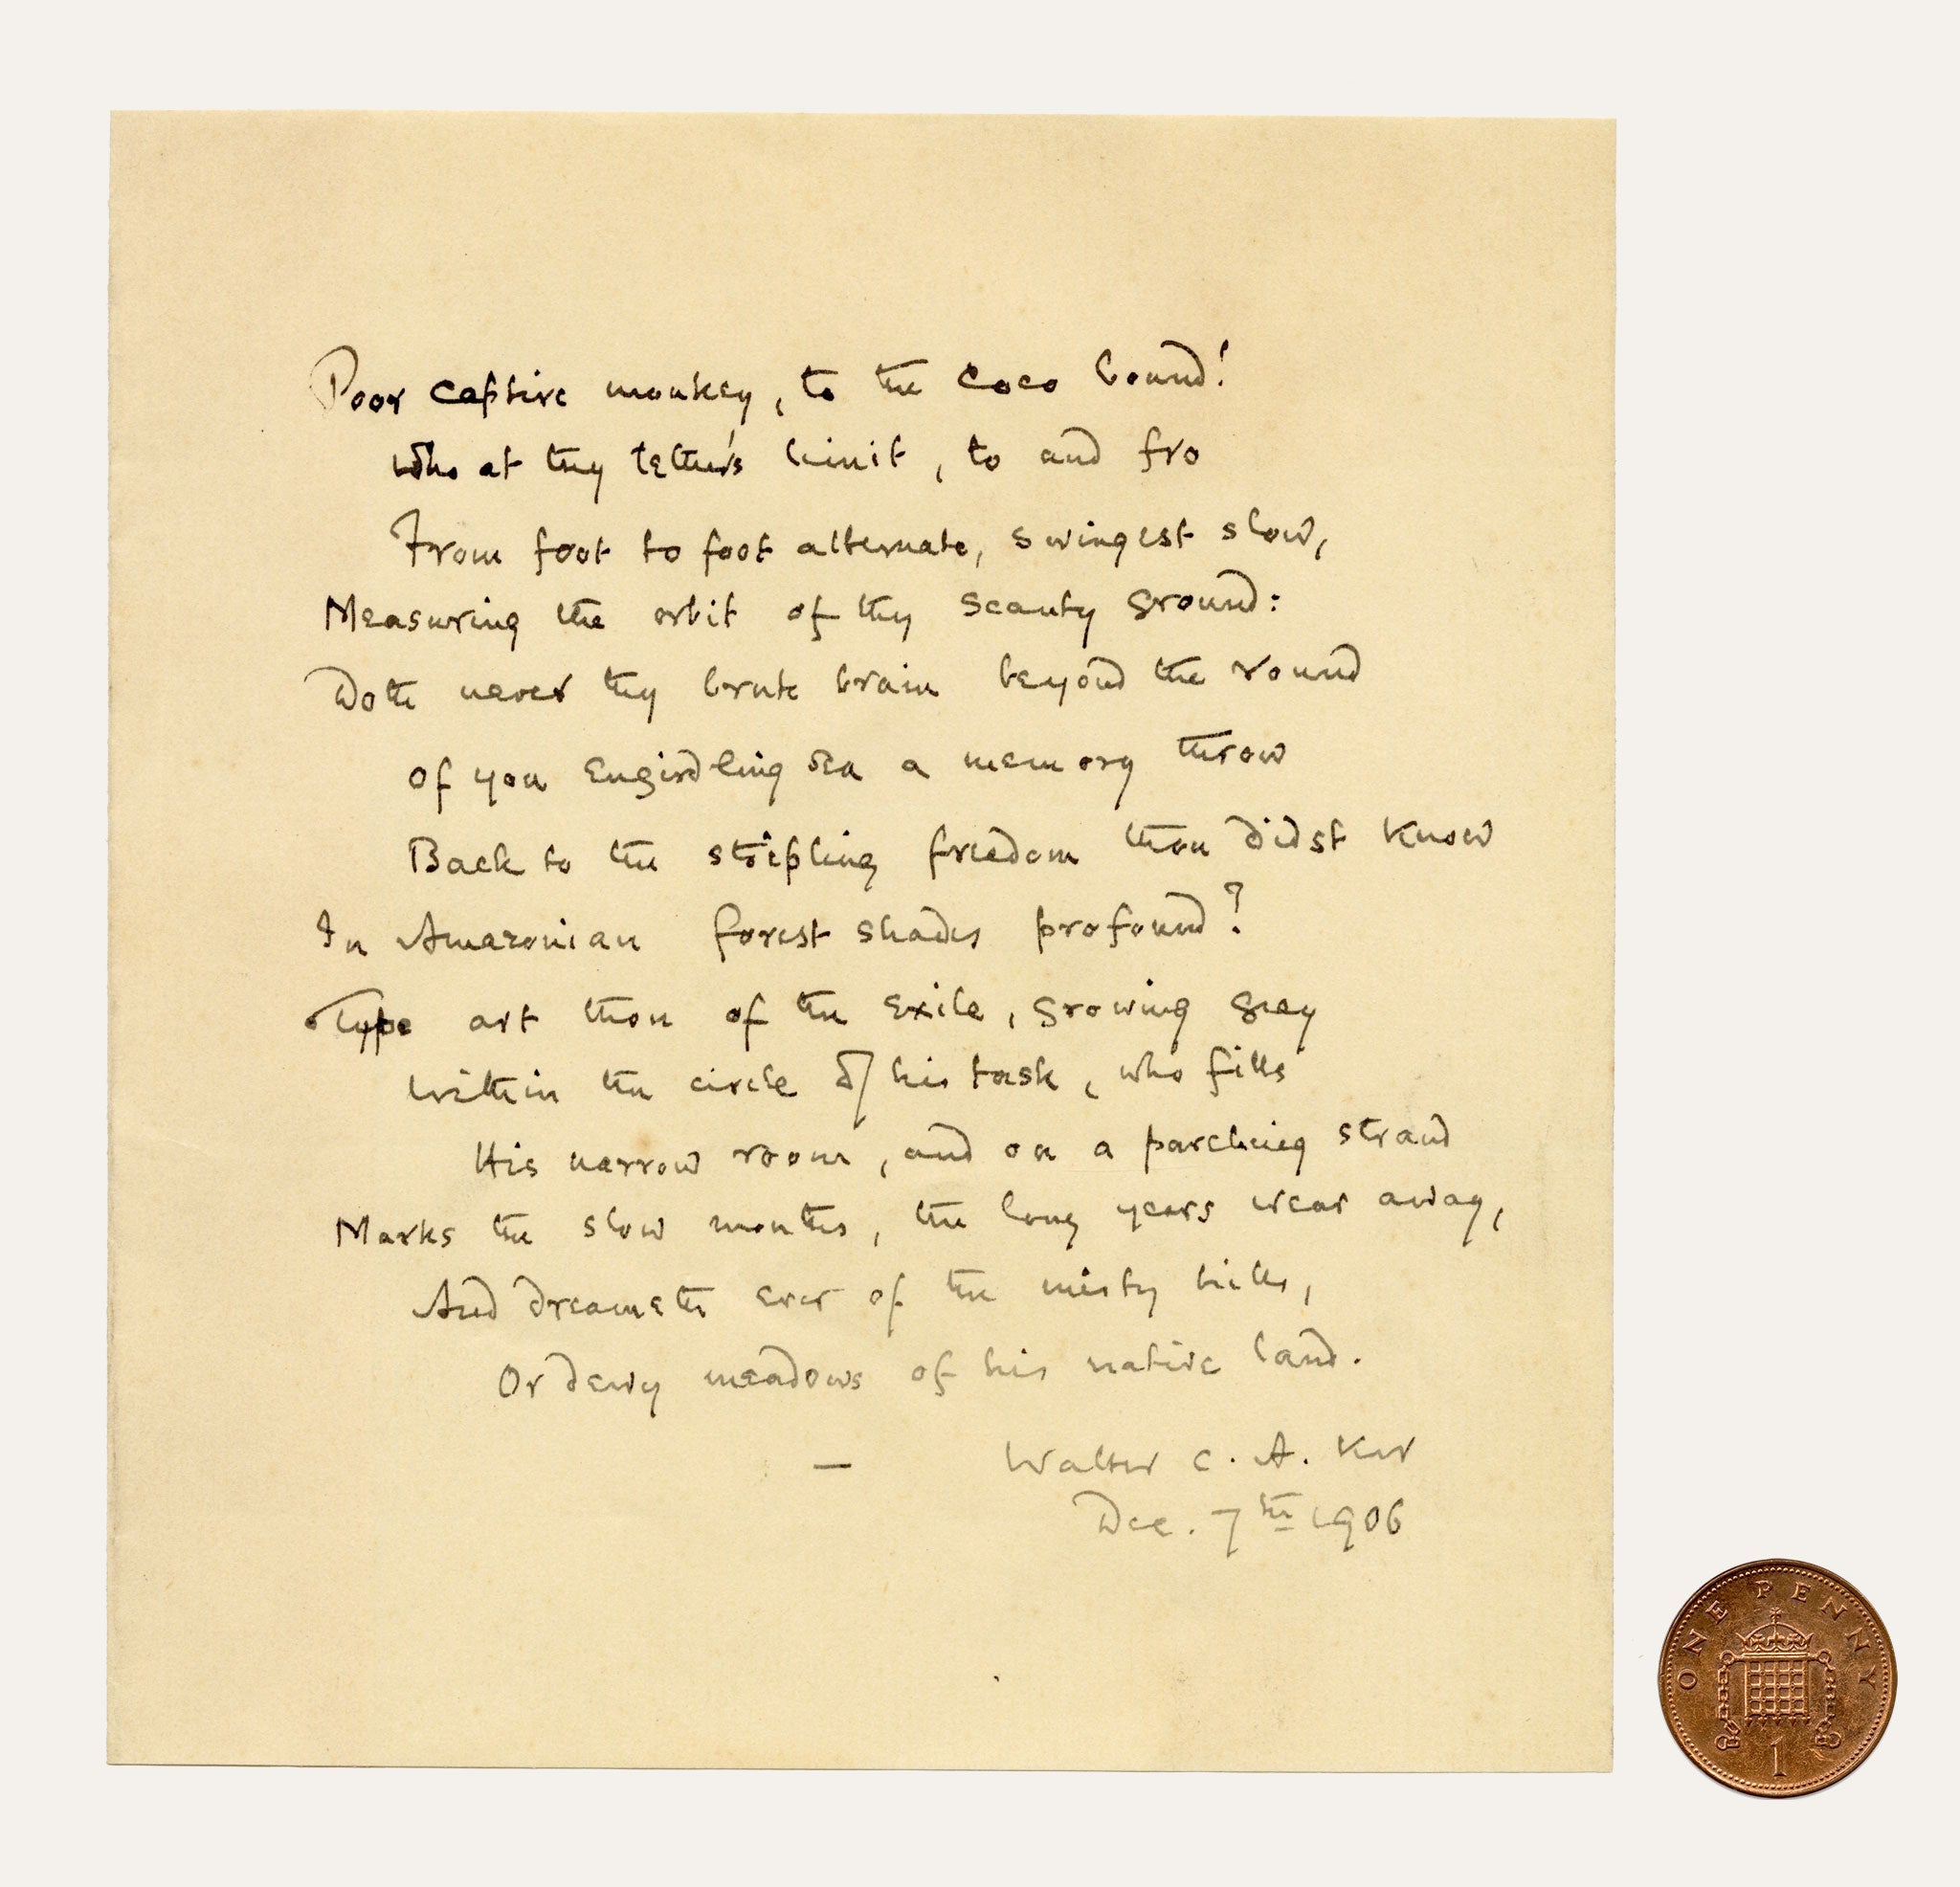 Poor captive monkey, to the coco bound!
Who at thy tether's limit, to and fro
From foot to foot alternate, swingest slow,
Measuring the orbit of thy scanty ground:
Doth never thy brute brain beyond the round
Of yon engirdling sea a memory throw
Back to the stripling freedom thou didst know
In Amazonian forest shades profound?
Type art thou of the exile, growing grey
Within the circle of his task, who fills
His narrow room, and on a parching strand
Marks the slow months, the long years wear away,
And dreameth ever of the misty hills,
Or dewy meadows of his native land.
— Walter C. A. Ker
Dec. 7th 1906
ONE PENNY
1